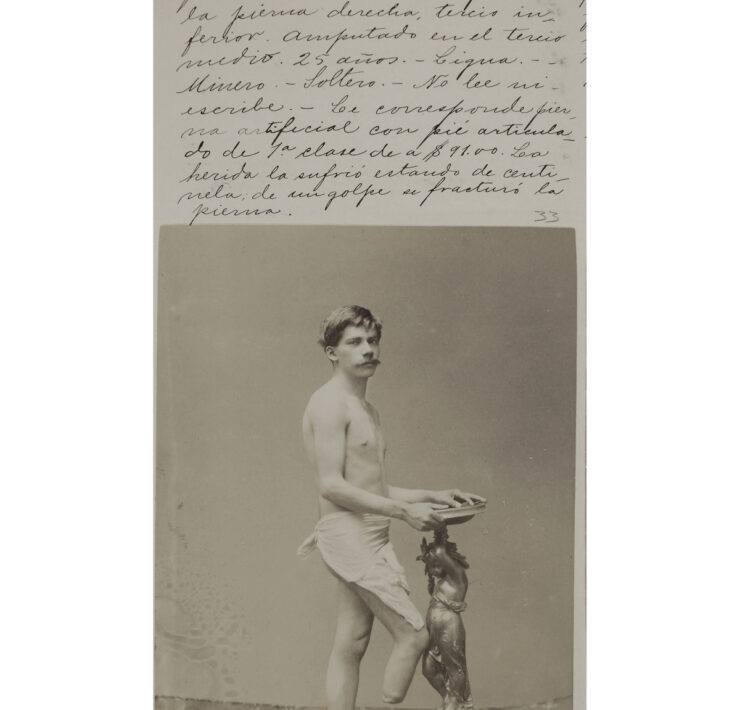 la pierna derecha, tercio in-
ferior. Amputado en el tercio
medio. 25 años. - Ligua. -
Minero. - Soltero. - No lee ni
escribe. - Le corresponde pier-
na artificial con pié articula-
do de 1ª clase de a $91.00. La
herida la sufrió estando de centi-
nela; de un golpe se fracturó la
pierna.
33